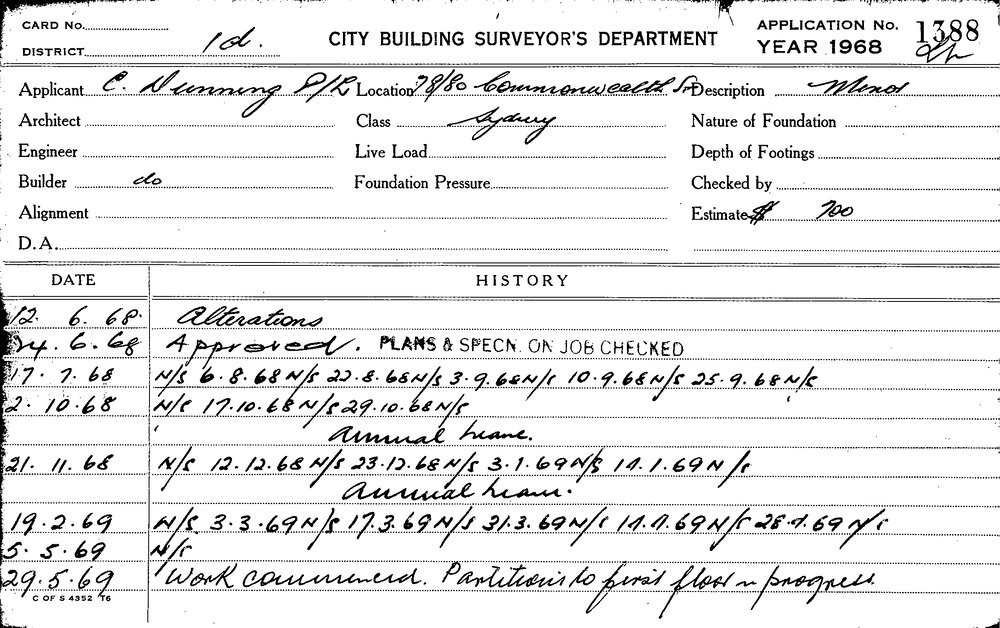 CARD No.
DISTRICT 1d.
CITY BUILDING SURVEYOR'S DEPARTMENT
APPLICATION No. 1388
YEAR 1968
Applicant C. Dunning P/L Location 78/80 Commonwealth St Description Minor
Architect Class Sydney Nature of Foundation
Engineer Live Load Depth of Footings
Builder do Foundation Pressure Checked by
Alignment Estimate $ 700
D.A.
DATE HISTORY
12. 6. 68. Alterations
24. 6. 68 Approved. PLANS & SPECN. ON JOB CHECKED
17. 7. 68 N/S 6.8.68 N/S 22.8.68 N/S 3.9.68 N/S 10.9.68 N/S 25.9.68 N/S
2. 10. 68 N/S 17.10.68 N/S 29.10.68 N/S
Annual Leave.
21. 11. 68 N/S 12.12.68 N/S 23.12.68 N/S 3.1.69 N/S 14.1.69 N/S
Annual Leave.
19. 2. 69 N/S 3.3.69 N/S 17.3.69 N/S 31.3.69 N/S 14.4.69 N/S 28.4.69 N/S
5. 5. 69 N/S
29. 5. 69 Work commenced. Partitions to first floor in progress.
C OF S 4352 T6